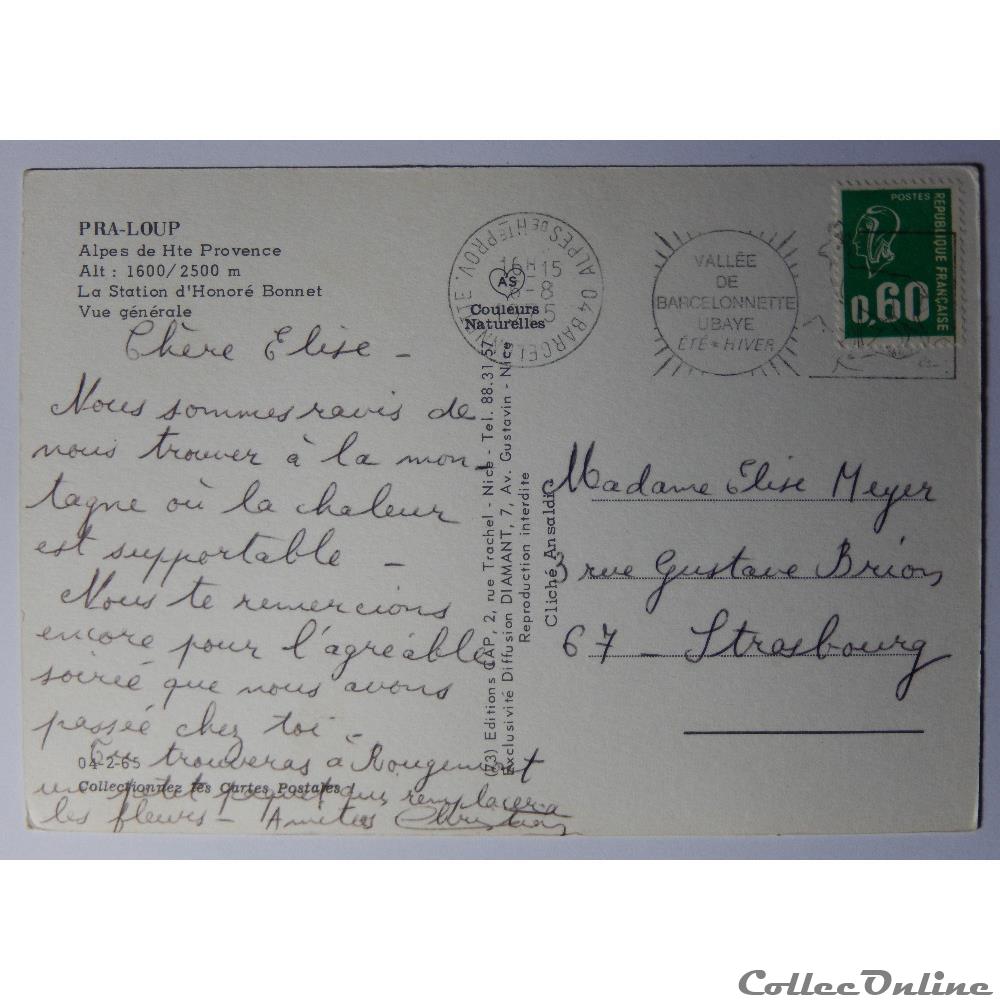 PRA-LOUP
Alpes de Hte Provence
Alt : 1600/2500 m
La Station d'Honoré Bonnet
Vue générale
Chère Elise -
Nous sommes ravis de
nous trouver à la mon-
tagne où la chaleur
est supportable -
Nous te remercions
encore pour l'agréable
soirée que nous avons
passée chez toi -
Tu trouveras à Rougemont
un petit paquet qui remplacera
les fleurs - Amitiés
04-2-65
Collectionnez les Cartes Postales
04 BARCELONNETTE
ALPES DE HTE PROV.
16H15
8-8
AS
Couleurs
Naturelles
(73) Editions CAP, 2, rue Trachel - Nice - Tel. 88.31.57
Exclusivité Diffusion DIAMANT, 7, Av. Gustavin - Nice
Reproduction interdite
Cliché Ansaldi
VALLÉE
DE
BARCELONNETTE
UBAYE
ÉTÉ * HIVER
POSTES
REPUBLIQUE FRANÇAISE
0,60
Madame Elise Meyer
3 rue Gustave Brion
67 - Strasbourg
CollecOnline